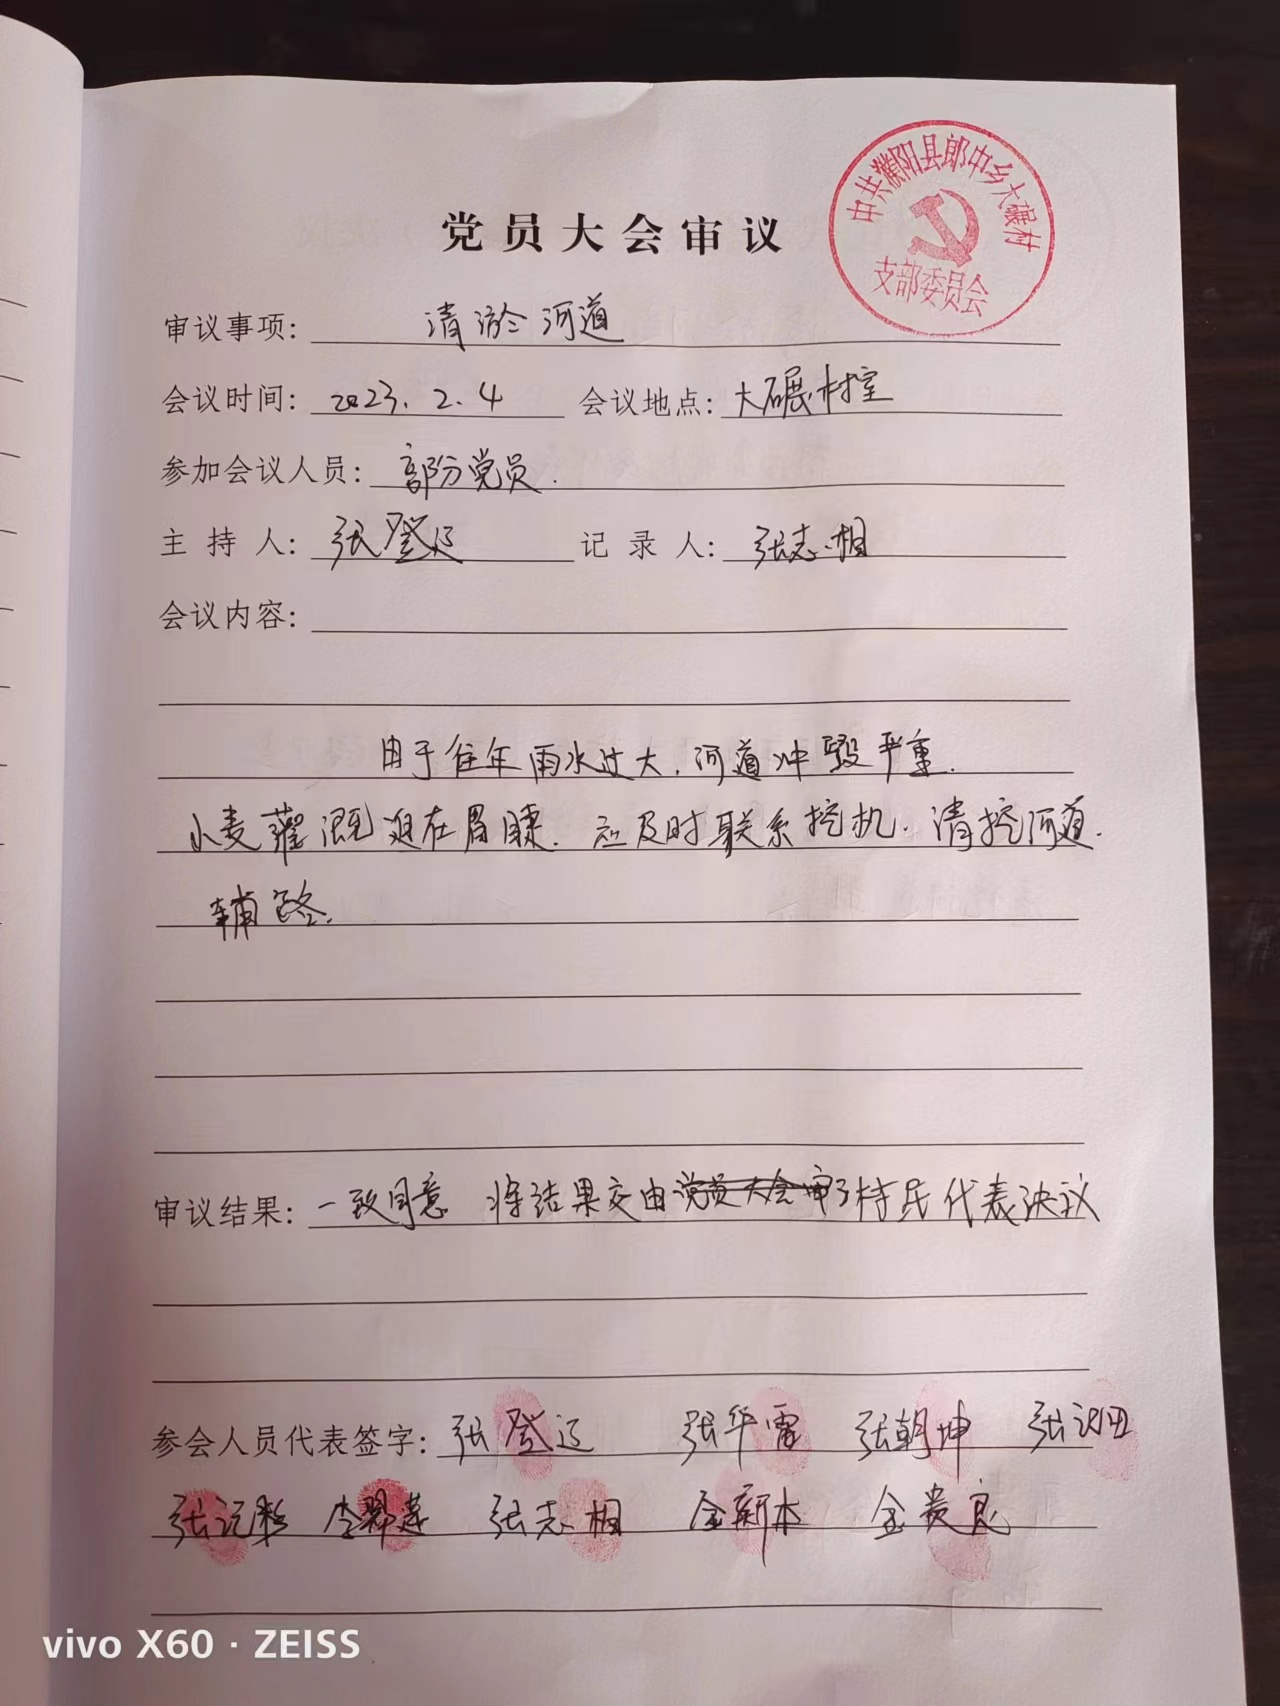 中共濮阳县郎中乡大碾村
支部委员会
党员大会审议
审议事项: 清淤河道
会议时间: 2023.2.4 会议地点: 大碾村室
参加会议人员: 部分党员.
主持人: 张登辽 记录人: 张志相
会议内容:
由于往年雨水过大,河道冲毁严重.
小麦灌溉迫在眉睫.应及时联系挖机.清挖河道.
辅路.
审议结果: 一致同意 将结果交由党员大会审村民代表决议
参会人员代表签字: 张登辽 张华雷 张朝坤 张
张 李 张志相 金新本 金贵良
vivo X60 · ZEISS